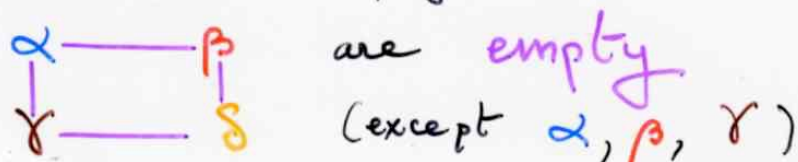 α β are empty
γ δ (except α, β, γ)